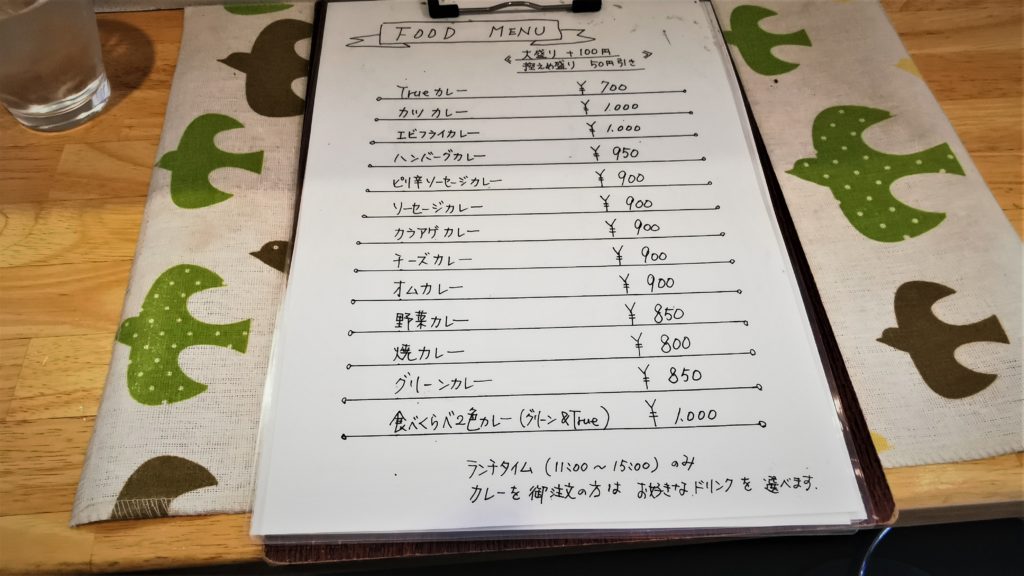 FOOD MENU
大盛り +100円
控えめ盛り 50円引き
Trueカレー ¥ 700
カツカレー ¥ 1.000
エビフライカレー ¥ 1.000
ハンバーグカレー ¥ 950
ピリ辛ソーセージカレー ¥ 900
ソーセージカレー ¥ 900
カラアゲカレー ¥ 900
チーズカレー ¥ 900
オムカレー ¥ 900
野菜カレー ¥ 850
焼カレー ¥ 800
グリーンカレー ¥ 850
食べくらべ2色カレー(グリーン&True) ¥ 1.000
ランチタイム (11:00~15:00) のみ
カレーを御注文の方は お好きなドリンクを 選べます.